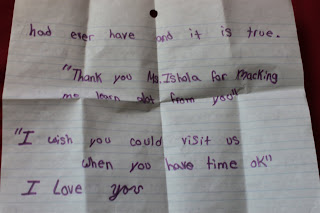 had ever have and it is true.
"Thank you Ms. Ishola for macking
me learn alot from you"
"I wish you could visit us
when you have time ok"
I Love you